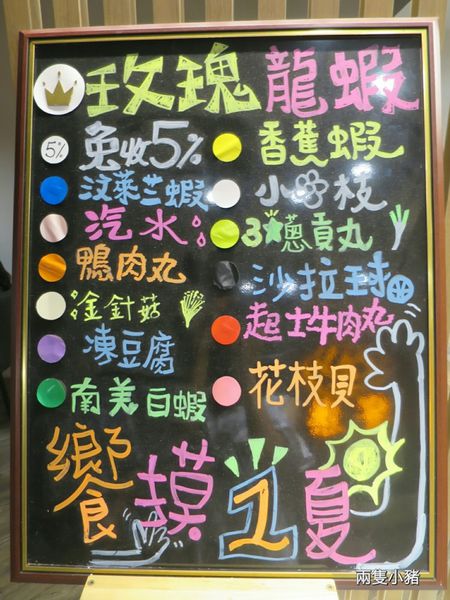 玫瑰龍蝦
5% 免收5%
汶萊兰蝦
汽水
鴨肉丸
金針菇
凍豆腐
南美白蝦
香蕉蝦
小✿枝
3★蔥貢丸
沙拉球
起士牛肉丸
花枝貝
饗摸1夏
兩隻小豬